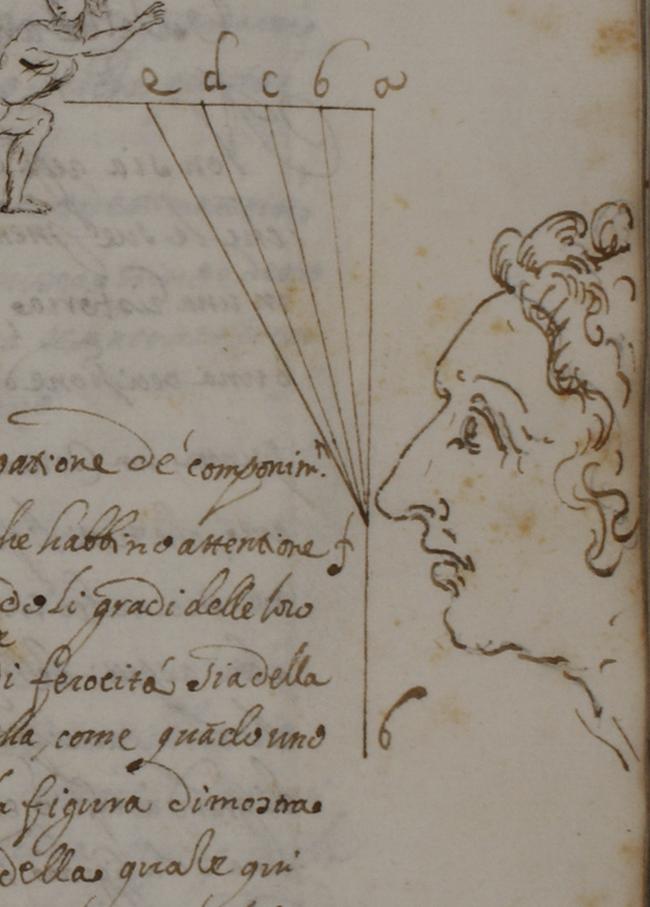 e d c b a
...atione de' componim.ti
he habbino attentione
f
do li gradi delle loro
di ferocità sia della
come quãdo uno
6
figura dimostra
della quale qui